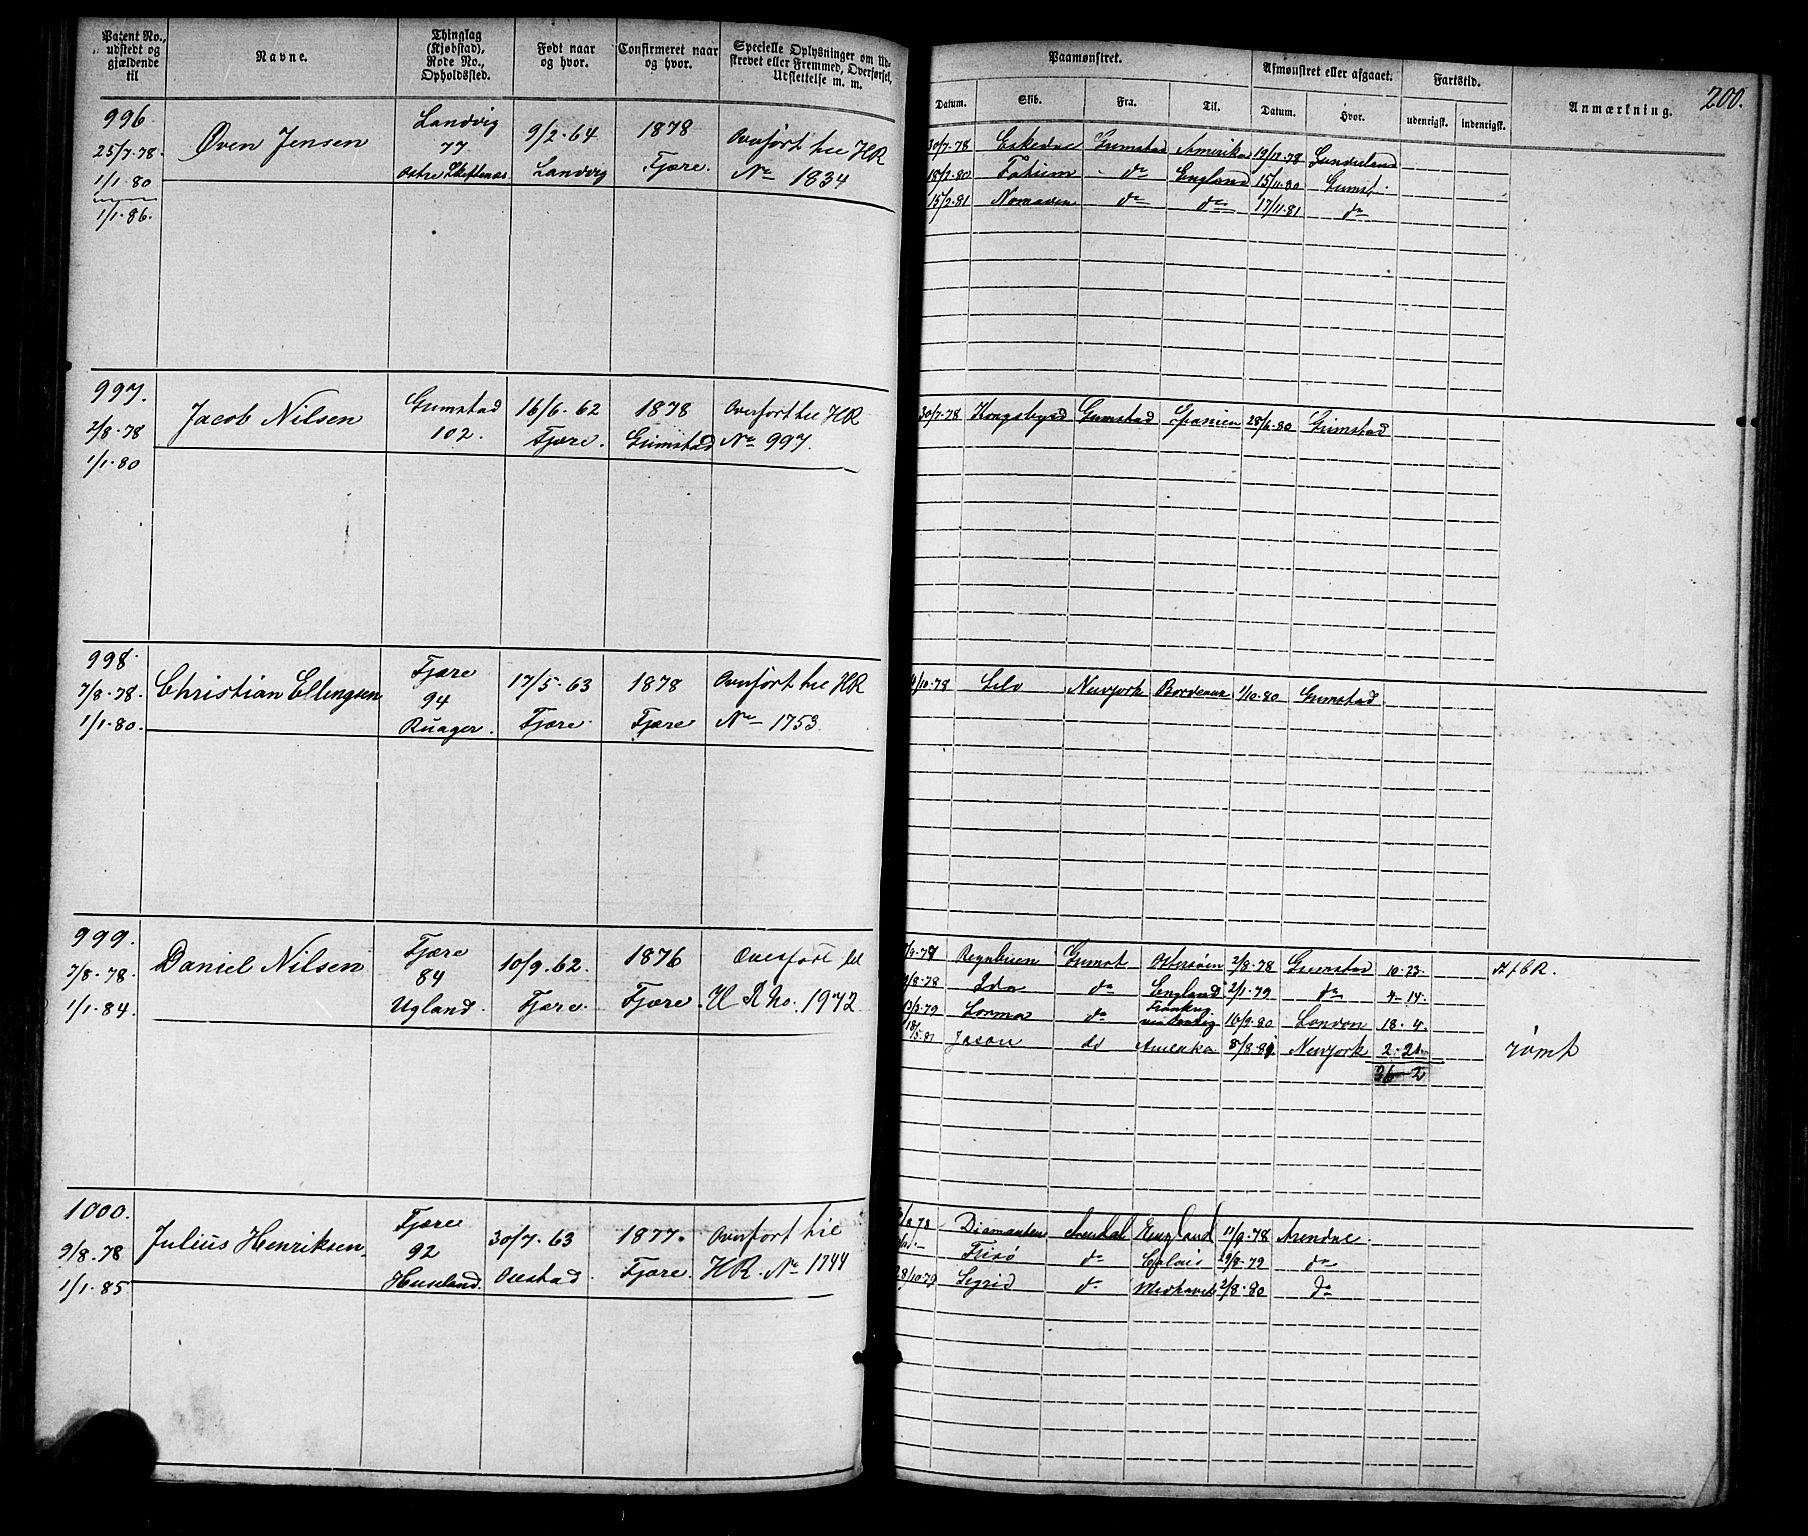 200.
Patent No., udstedt og gjældende til
Navne.
Thinglag (Kjøbstad), Rode No., Opholdssted.
Født naar og hvor.
Confirmeret naar og hvor.
Specielle Oplysninger om Udskrevet eller Fremmed, Overførsel, Udslettelse m. m.
Paamønstret.
Datum. Skib. Fra. Til.
Afmønstret eller afgaaet.
Datum. Hvor.
Fartstid.
udenrigst. indenrigst.
Anmærkning.
996
25/7-78.
1/1-80
1/1-86.
Øven Jensen
Landvig
77.
Østre
9/2-64
Landvig
1878
Fjære.
Overført til HR
No 1834
30/7-78 Grimstad Amerika 19/12-78 Sunderland
18/2-80 Fatium do England 15/11-80 Grimst.
15/2-81 Nomaden do do 17/11-81 do
997.
2/8-78
1/1-80
Jacob Nilsen
Grimstad
102.
16/6-62
Fjære.
1878
Grimstad
Overført til HR
No 997.
30/7-78 Grimstad Spanien 28/6-80 Grimstad
998.
7/8-78.
1/1-80.
Christian Ellingsen
Fjære
94
Ruager.
17/5-63
Fjære.
1878
Fjære
Overført til HR
No 1753.
/10-78 Newjork Bordeaux 1/10-80 Grimstad
999.
7/8-78.
1/1-84.
Daniel Nilsen
Fjære
84
Ugland.
10/9-62.
Fjære.
1876
Fjære.
Overført til
H R No. 1972
Regnbuen Grimst Østersøen 2/8-78 Grimstad 10-23.
/8-78 Ida do England 2/1-79 do 4-14.
13/3-79 Lorma do 16/9-80 London 18-4.
18/5-81 Jason do Amerika 8/8-81 Newjork 2-20
rømt
36-2
1000.
9/8-78
1/1-85
Julius Henriksen.
Fjære
92
30/7-63
1877.
Fjære.
Overført til
HR. No 1744
/8-78 Diamanten Arendal England 17/9-78 Arendal
do Calais 29/8-79 do
28/10-79 Sigrid do 2/8-80 do